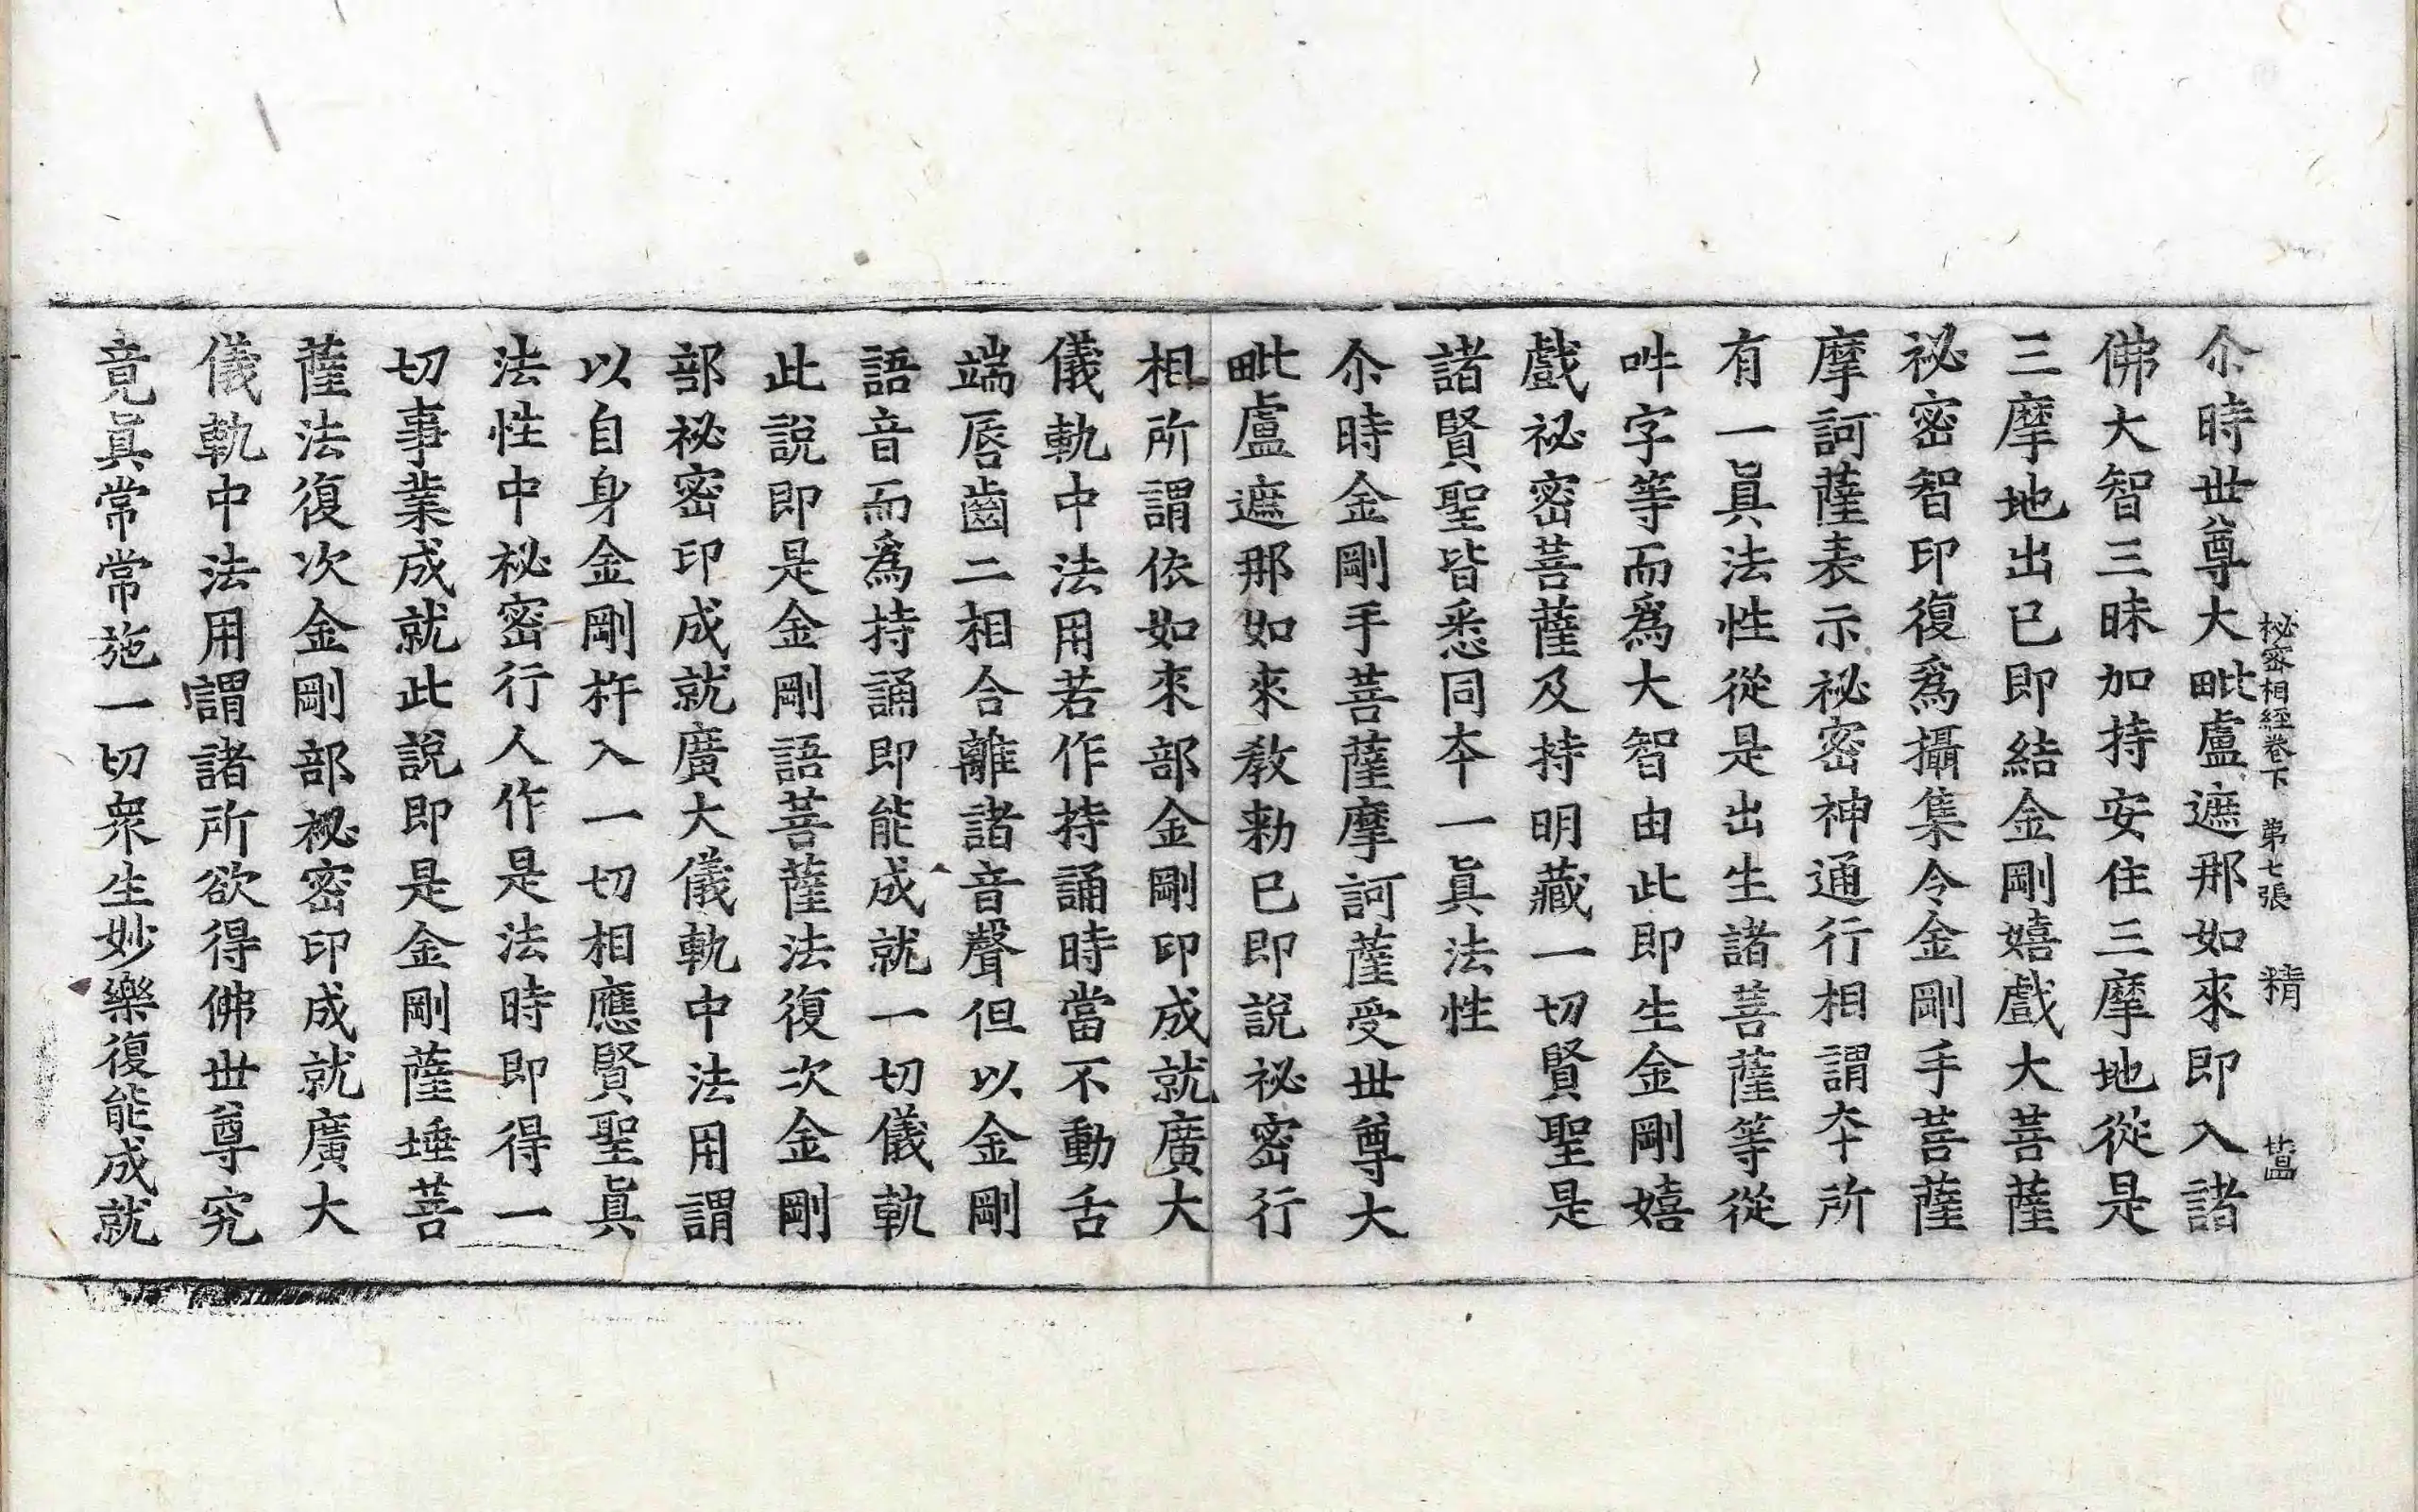 秘密相經卷下 第七張 精
尒時世尊大毗盧遮那如來即入諸
佛大智三昧加持安住三摩地從是
三摩地出已即結金剛嬉戲大菩薩
祕密智印復爲攝集令金剛手菩薩
摩訶薩表示祕密神通行相謂夲所
有一眞法性從是出生諸菩薩等從
吽字等而爲大智由此即生金剛嬉
戲祕密菩薩及持明藏一切賢聖是
諸賢聖皆悉同夲一眞法性
尒時金剛手菩薩摩訶薩受世尊大
毗盧遮那如來教勑已即說祕密行
相所謂依如來部金剛印成就廣大
儀軌中法用若作持誦時當不動舌
端脣齒二相合離諸音聲但以金剛
語音而爲持誦即能成就一切儀軌
此說即是金剛語菩薩法復次金剛
部祕密印成就廣大儀軌中法用謂
以自身金剛杵入一切相應賢聖眞
法性中祕密行人作是法時即得一
切事業成就此說即是金剛薩埵菩
薩法復次金剛部祕密印成就廣大
儀軌中法用謂諸所欲得佛世尊究
竟眞常常施一切衆生妙樂復能成就